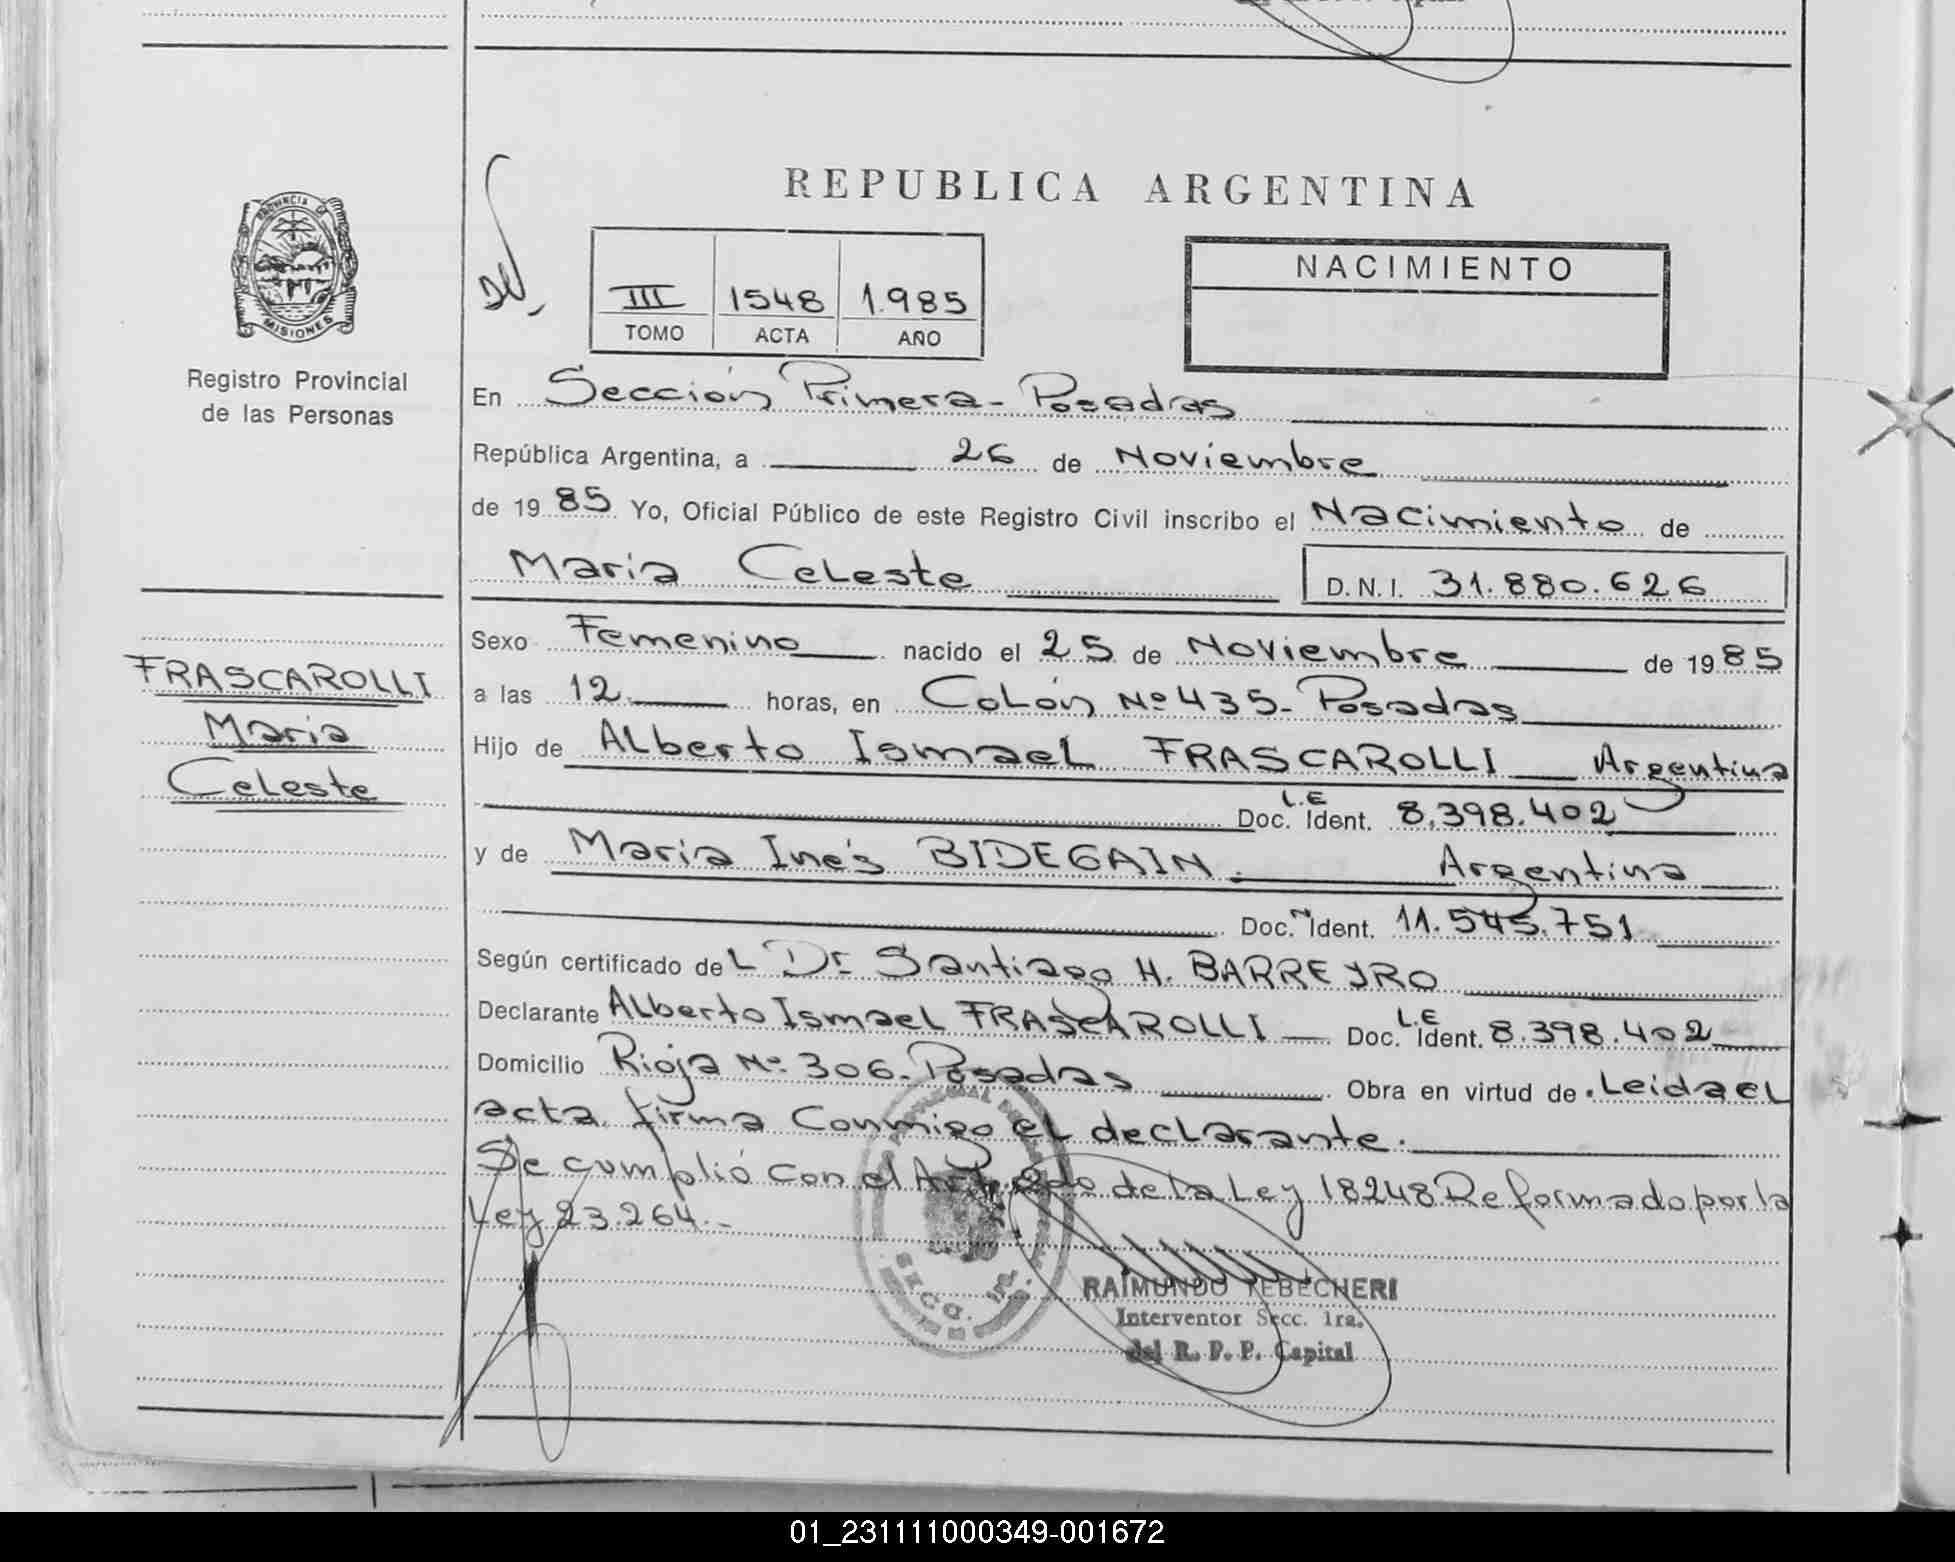 REPUBLICA ARGENTINA
PROVINCIA DE
MISIONES
Registro Provincial
de las Personas
III 1548 1.985
TOMO ACTA AÑO
NACIMIENTO
En Sección Primera - Posadas
República Argentina, a 26 de Noviembre
de 19 85 Yo, Oficial Público de este Registro Civil inscribo el Nacimiento de
Maria Celeste D.N.I. 31.880.626
FRASCAROLLI
Maria
Celeste
Sexo Femenino nacido el 25 de Noviembre de 19 85
a las 12 horas, en Colón Nº 435 - Posadas
Hijo de Alberto Ismael FRASCAROLLI Argentina
Doc. L.E Ident. 8.398.402
y de Maria Inés BIDEGAIN. Argentina
Doc. N Ident. 11.545.751
Según certificado de L Dr. Santiago H. BARREYRO
Declarante Alberto Ismael FRASCAROLLI Doc. L.E Ident. 8.398.402
Domicilio Rioja Nº 306 - Posadas Obra en virtud de . Leida el
acta firma Conmigo el declarante.
Se cumplió con el Art. 2do de la Ley 18248 Reformado por la
Ley 23.264.-
SECC.
RAIMUNDO YEBECHERI
Interventor Secc. 1ra.
del R. P. P. Capital
01_231111000349-001672